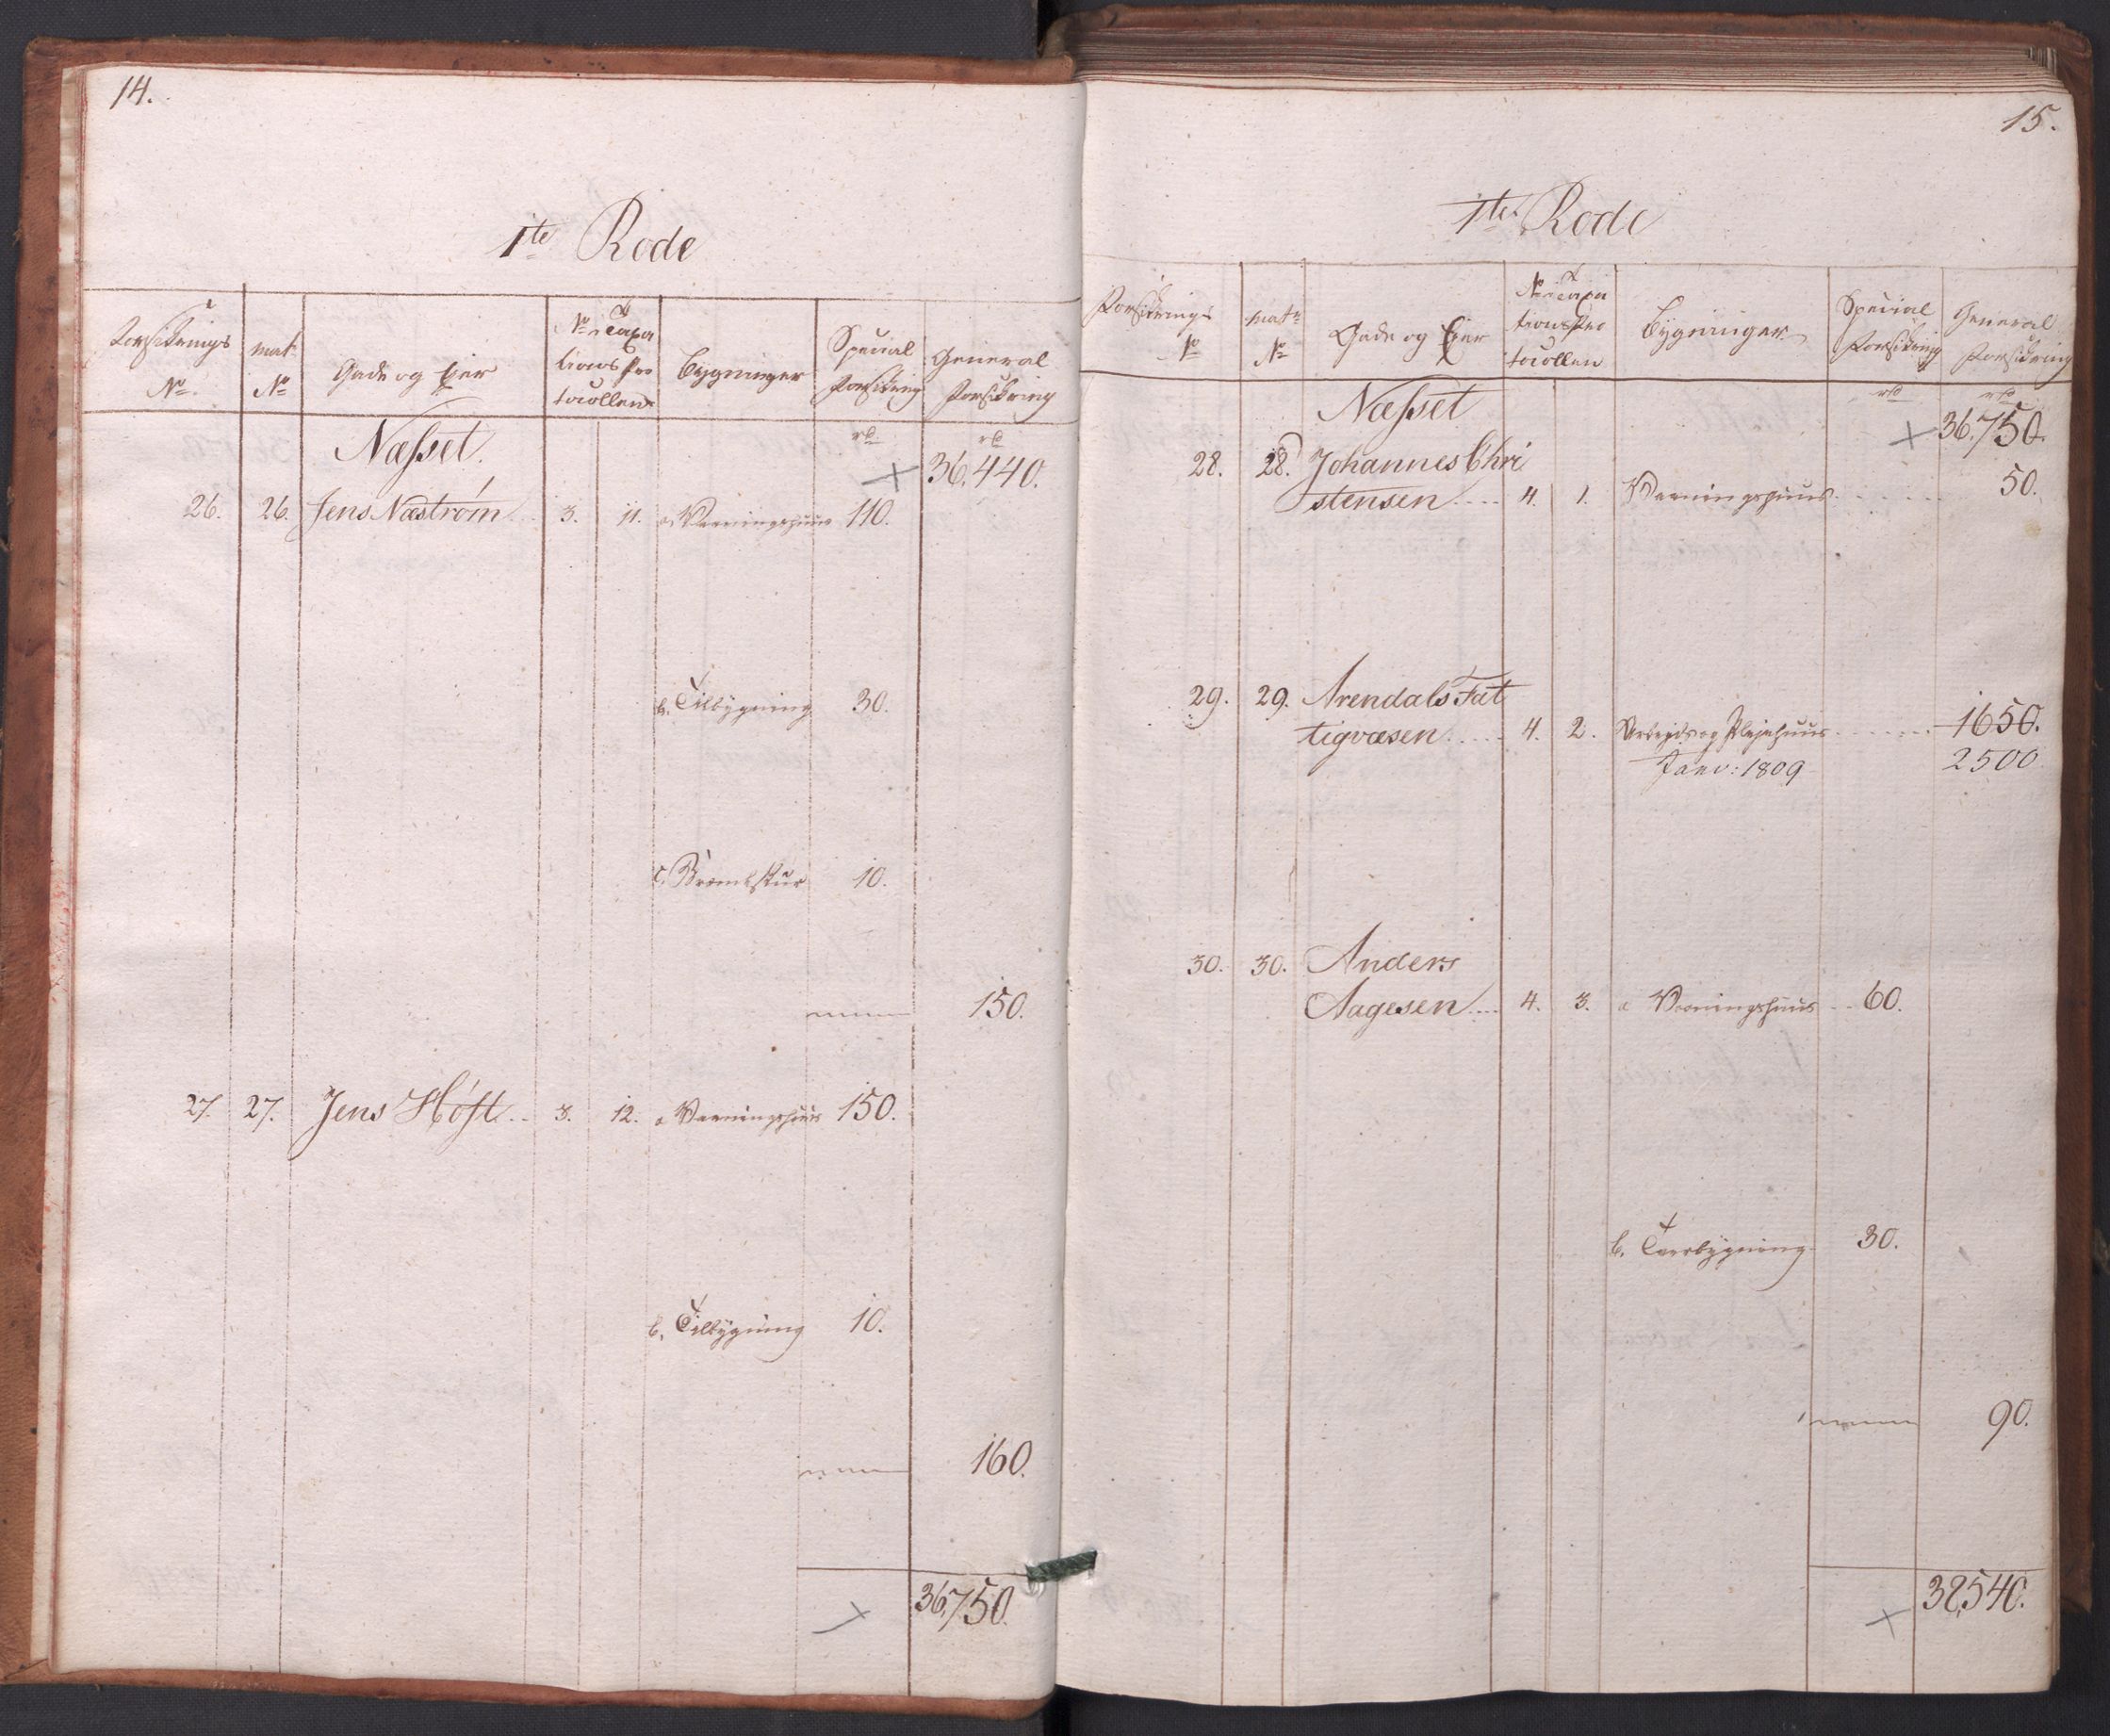 14.
1te Rode
Forsikrings No. | mat No | Gade og Eier | No i Taxa tions Pro tocollen | Bygninger | Special Forsikring | General Forsikring
Næsset.
rd rd
36,440.
26. 26. Jens Næstrøm .. 3. 11. a Vaaningshuus 110.
b. Tilbygning 30.
c. Brændskur 10.
150.
27. 27. Jens Høst .. 3. 12. a Vaaningshuus 150.
b. Tilbygning 10.
160.
36,750.
15.
1te Rode
Forsikrings No | matr No | Gade og Eier | No i Taxa tions Pro tocollen | Bygninger | Special Forsikring | General Forsikring
Næsset
rd rd
36,750.
28. 28. Johannes Chri
stensen .... 4. 1. Vaaningshuus. . . . . . . 50.
29. 29. Arendals Fat
tigvæsen ..... 4. 2. Arbeids og Plejehuus . . . . . . 1650.
Janv: 1809 2500
30. 30. Anders
Aagesen .... 4. 3. a Vaaningshuus .. 60.
b. Tværbygning 30.
90.
38,540.